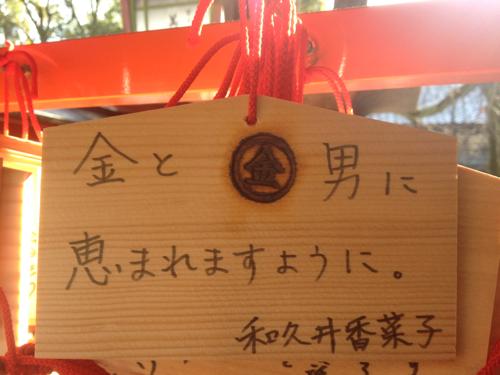 金と 金 男に
恵まれますように。
和久井香菜子